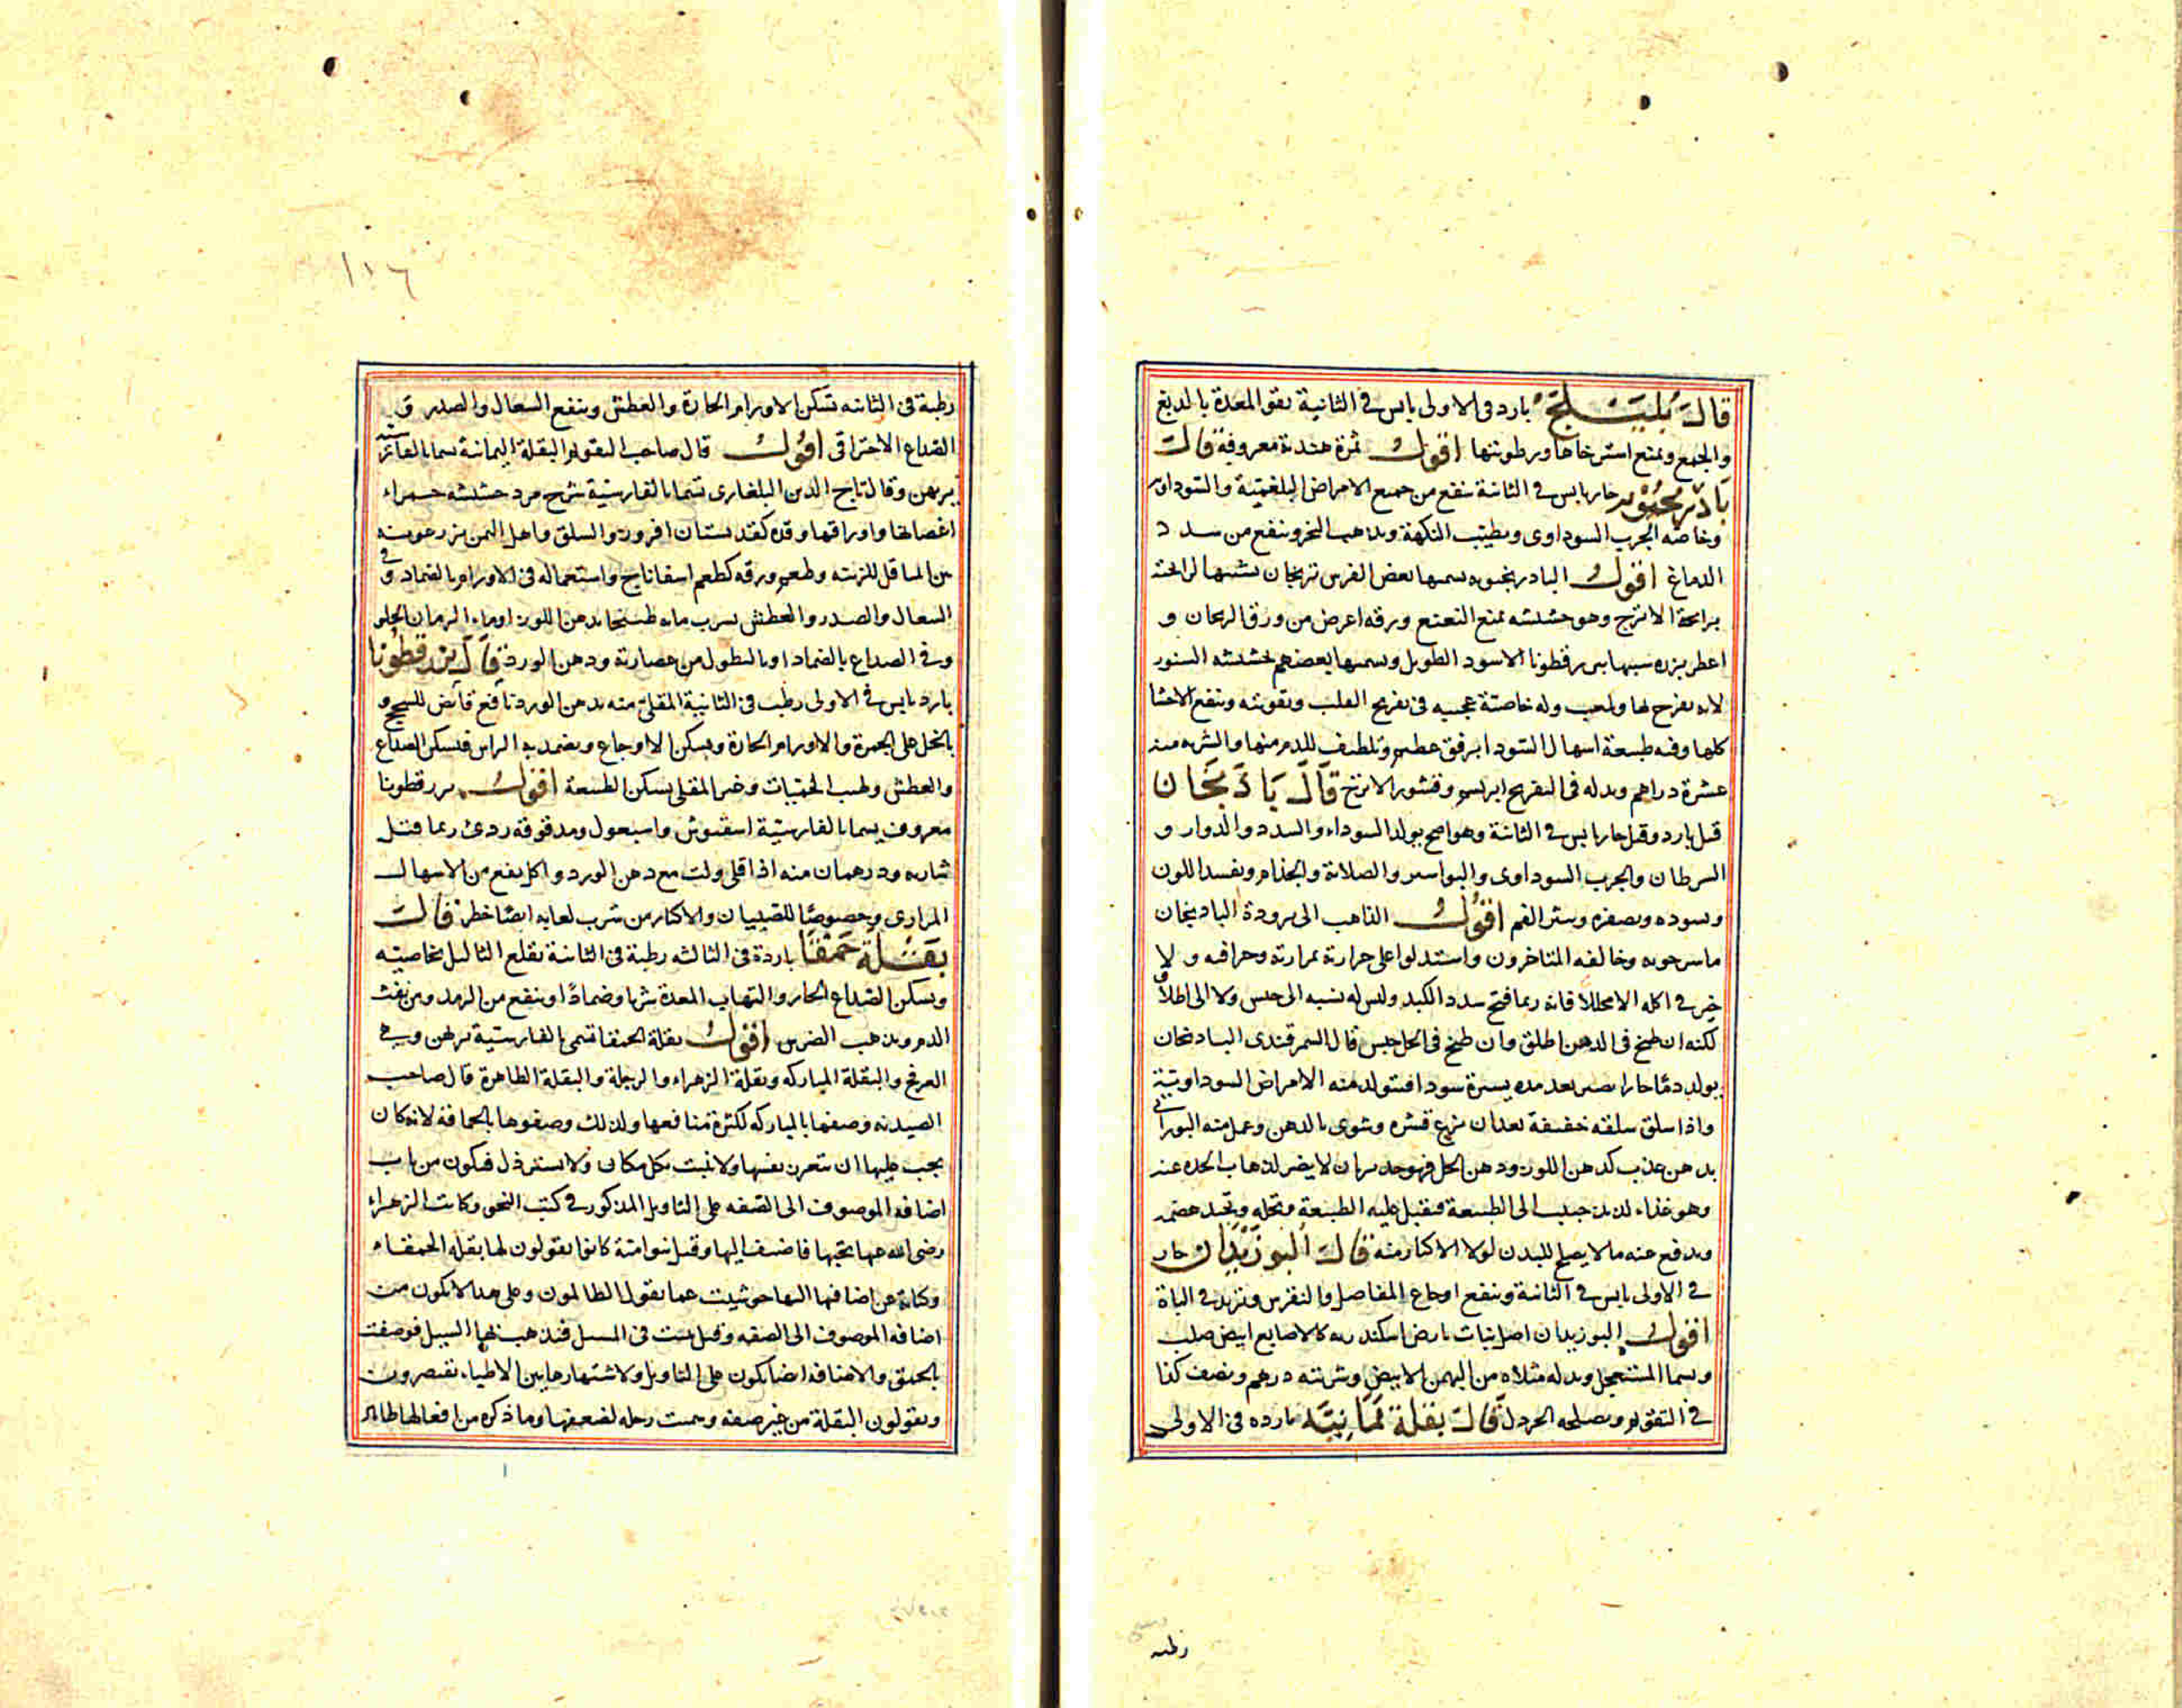 قال بليلج بارد فى الاولى يابس فى الثانية يقوى المعدة بالدبغ
والجمع ويمنع استرخاها ورطوبتها اقول ثمرة هندية معروفة قال
بادرنجبويه حار يابس فى الثانية ينفع من جميع الامراض البلغمية والسوداوية
وخاصة الجرب السوداوى ويطيب النكهة ويذهب البخر وينفع من سدد
الدماغ اقول البادرنجبويه يسميها بعض الفرس ترنجان
برائحة الاترج وهو حشيشة ورقه اعرض من ورق الريحان و
اعطر بزره الاسود الطويل ويسميها بعضهم حشيشة السنور
لانه يفرح لها وله خاصية عجيبه فى تفريح القلب وتقويته وينفع الاحشا
كلها وفيه طبيعة اسهال السودا برفق عظيم وتلطيف للدم منها والشربه منه
عشرة دراهم وبدله فى التفريح ابريسم وقشور الاترج قال باذنجان
قيل بارد وقيل حار يابس فى الثانية وهو اصح يولد السوداء والسدد والدوار و
السرطان والجرب السوداوى والبواسير والصلابة والجذام ويفسد اللون
ويسوده ويصفره ويبثر الفم اقول الذاهب الى برودة الباذنجان
ماسرجويه وخالفه المتاخرون واستدلوا على حرارته بمرارته وحرافته ولا
خير فى اكله الا مخللا فانه ربما فتح سدد الكبد وليس له نسبه الى حبس ولا الى اطلاق
لكنه ان طبخ فى الدهن اطلق وان طبخ فى الخل حبس قال السمرقندى الباذنجان
يولد دما حارا يصير بعد مده يسيرة سودا فتتولد منه الامراض السوداوية
واذا سلق سلقه خفيفة بعد ان نزع قشره وشوى بالدهن وعمل منه البورانى
بدهن عذب كدهن اللوز ودهن الخل لا يضر لذهاب الحده عنه
وهو غذاء لذيذ حبيب الى الطبيعة فتقبل عليه الطبيعة وتحله وتجيد هضمه
ويدفع عنه ما لا يصلح للبدن لولا الاكثار منه قال البوزيدان حار
فى الاولى يابس فى الثانية وينفع اوجاع المفاصل والنقرس ويزيد فى الباة
اقول البوزيدان اصل نبات بارض اسكندريه كالاصابع ابيض صلب
ويسما المستعجل وبدله مثلاه من البهمن الابيض وشربته درهم ونصف كذا
فى التقويم ويصلحه الخردل قال بقلة يمانية بارده فى الاولى
رطبه
١١٦
رطبة فى الثانيه تسكن الاورام الحارة والعطش وينفع السعال والصدر و
الصداع الاحتراقى اقول قال صاحب التقويم البقلة اليمانية يسما بالفارسية
بربهن وقال تاج الدين البلغارى تسما بالفارسية حشيشه حمراء
اغصانها واوراقها وقده كقد بستان افروز والسلق واهل اليمن يزرعونه
للزينه وطعم ورقه كطعم اسفاناخ واستعماله فى الاورام بالضماد وفى
السعال والصدر والعطش بشرب مائه طبيخا بدهن اللوز او ماء الرمان الحلو
وفى الصداع بالضماد او بالنطول من عصارته ودهن الورد قال بزر قطونا
بارد يابس فى الاولى رطب فى الثانية المقلى منه بدهن الورد نافع قابض للسحج و
بالخل على الجمرة والاورام الحارة ويسكن الاوجاع ويضمد به الراس فيسكن الصداع
والعطش ولهيب الحميات وغير المقلى يسكن الطبيعة اقول بزر قطونا
معروف يسما بالفارسية اسفيوش واسبغول ومدقوقه ردئ ربما قتل
شاربه ودرهمان منه اذا قلى ولت مع دهن الورد واكل ينفع من الاسهال
المرارى وخصوصا للصبيان والاكثار من شرب لعابه ايضا خطر قال
بقلة حمقا باردة فى الثالثه رطبة فى الثانية تقلع الثاليل بخاصيته
ويسكن الصداع الحار والتهاب المعدة شربا وضمادا وينفع من الرمد ومن نفث
الدم ويذهب الضرس اقول بقلة الحمقا تسمى بالفارسية بربهن وهى
العرفج والبقلة المباركه وبقلة الزهراء والرجلة والبقلة الطاهرة قال صاحب
الصيدنه وصفها بالمباركه لكثرة منافعها ولذلك وصفوها بالحماقة لانه كان
يجب عليها ان تتعزز بنفسها ولا تنبت بكل مكان ولا تسترذل فيكون من باب
اضافه الموصوف الى الصفه على التاويل المذكور فى كتب النحو وكانت الزهراء
رضى الله عنها تحبها فاضيف اليها وقيل بنو امية كانوا يقولون لها بقلة الحمقاء
وكناية عن اضافتها اليها حوشيت عما يقول الظالمون وعلى هذا لا يكون من
اضافه الموصوف الى الصفه وقيل تنبت فى المسيل فيذهب بها السيل فوصفت
بالحمق والاضافه ايضا يكون على التاويل ولاشتهارها بين الاطباء يقتصرون
ويقولون البقلة من غير صفه وسميت رجله لضعفها وما ذكره من افعالها ظاهر